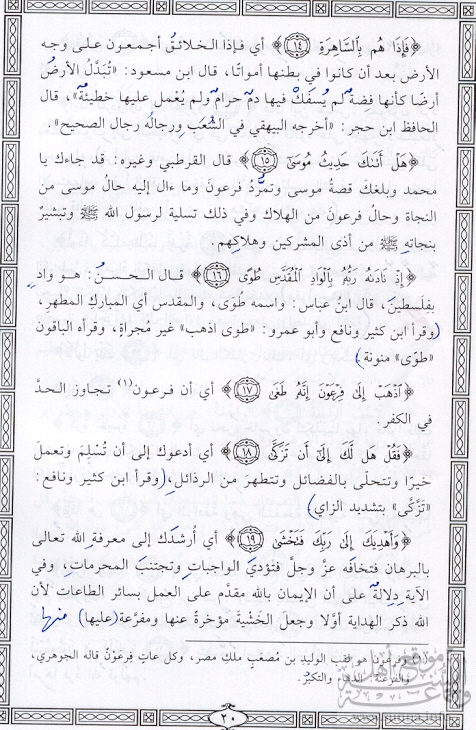 ﴿فَإِذَا هُم بِالسَّاهِرَةِ ﴿١٤﴾﴾ أي فإذا الخلائقُ أجمعون على وجه
الأرض بعد أن كانوا في بطنها أمواتًا، قال ابن مسعود: «تُبَدَّلُ الأرضُ
أرضًا كأنها فِضةٌ لم يُسفَكْ فيها دمٌ حرامٌ ولم يُعْمل عليها خطيئةٌ»، قال
الحافظ ابن حجر: «أخرجه البيهقي في الشُّعَبِ ورجالُه رجال الصحيح».
﴿هَلْ أَتَىٰكَ حَدِيثُ مُوسَىٰ ﴿١٥﴾﴾ قال القرطبي وغيره: قد جاءك يا
محمد وبلغكَ قصةُ موسى وتمرُّدُ فرعونَ وما ءال إليه حالُ موسى من
النجاة وحالُ فرعونَ من الهلاك وفي ذلك تسلية لرسول الله ﷺ وتبشيرٌ
بنجاته ﷺ من أذى المشركين وهلاكِهم.
﴿إِذْ نَادَىٰهُ رَبُّهُ بِالْوَادِ الْمُقَدَّسِ طُوًى ﴿١٦﴾﴾ قال الحسنُ: هو وادٍ
بفِلَسطين، قال ابنُ عباس: واسمه طُوًى، والمقدس أي المبارك المطهر،
(وقرأ ابن كثير ونافع وأبو عمرو: «طوى اذهب» غير مُجراةٍ، وقرأه الباقون
«طوًى» منونة)
﴿اذْهَبْ إِلَىٰ فِرْعَوْنَ إِنَّهُ طَغَىٰ ﴿١٧﴾﴾ أي أن فرعون(١) تجاوز الحدَّ
في الكفر.
﴿فَقُلْ هَل لَّكَ إِلَىٰ أَن تَزَكَّىٰ ﴿١٨﴾﴾ أي أدعوك إلى أن تُسْلِمَ وتعملَ
خيرًا وتتحلّى بالفضائل وتتطهرَ من الرذائلِ، (وقرأ ابن كثير ونافع:
«تَزَّكَّى» بتشديد الزاي)
﴿وَأَهْدِيَكَ إِلَىٰ رَبِّكَ فَتَخْشَىٰ ﴿١٩﴾﴾ أي أُرشدَك إلى معرفةِ الله تعالى
بالبرهان فتخافَه عزَّ وجلَّ فتؤديَ الواجباتِ وتجتنبَ المحرماتِ، وفي
الآية دِلالةٌ على أن الإيمان بالله مقدَّم على العمل بسائر الطاعات لأن
الله ذكر الهداية أولًا وجعلَ الخَشْيةَ مؤخرةً عنها ومفرَّعة (عليها) منها
(١) وفرعون هو لقب الوليد بن مُصْعَبٍ ملكِ مصر، وكل عاتٍ فِرعَوْنٌ قاله الجوهري،
والفرعنةُ الدهاءُ والتكبرُ.
٢٠